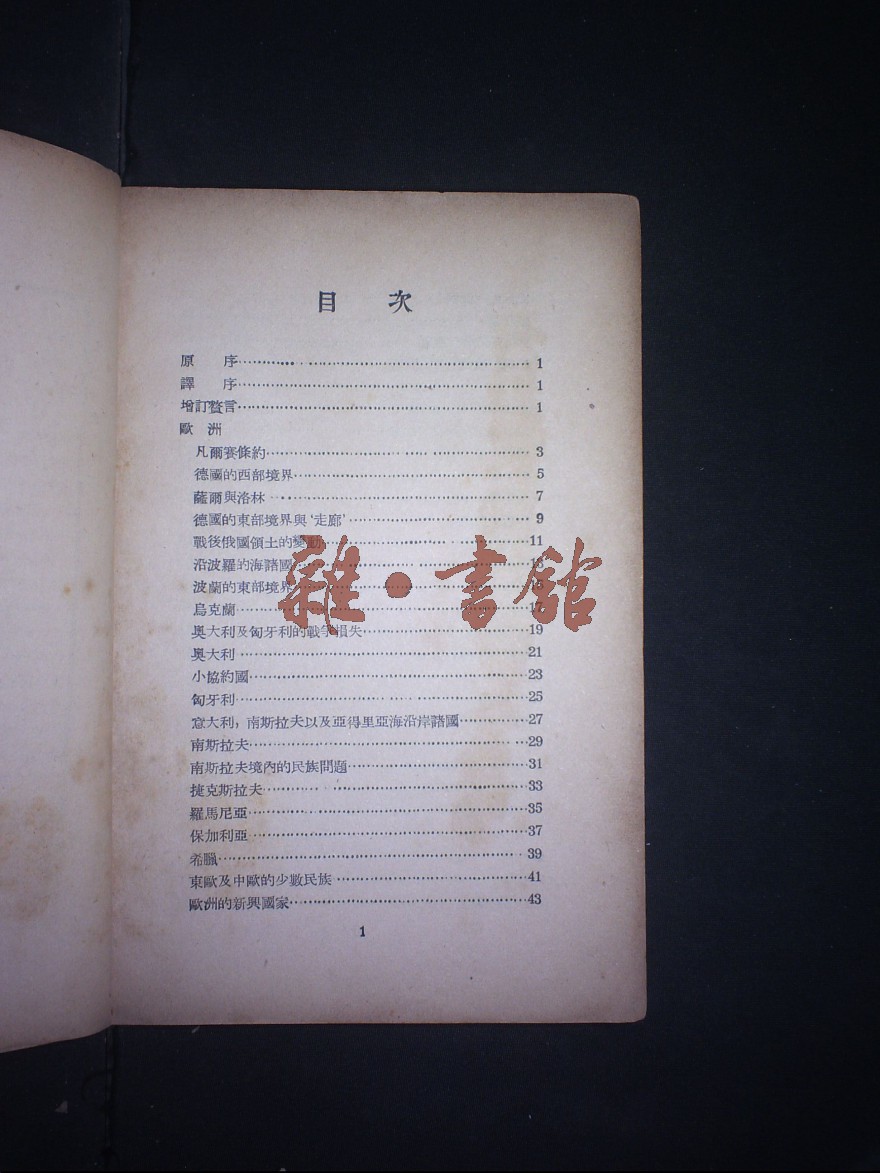 目 次
原 序 1
譯 序 1
增訂贅言 1
歐 洲
凡爾賽條約 3
德國的西部境界 5
薩爾與洛林 7
德國的東部境界與‘走廊’ 9
戰後俄國領土的變動 11
沿波羅的海諸國 13
波蘭的東部境界 15
烏克蘭 17
雜·書館
奧大利及匈牙利的戰爭損失 19
奧大利 21
小協約國 23
匈牙利 25
意大利,南斯拉夫以及亞得里亞海沿岸諸國 27
南斯拉夫 29
南斯拉夫境內的民族問題 31
捷克斯拉夫 33
羅馬尼亞 35
保加利亞 37
希臘 39
東歐及中歐的少數民族 41
歐洲的新興國家 43
1